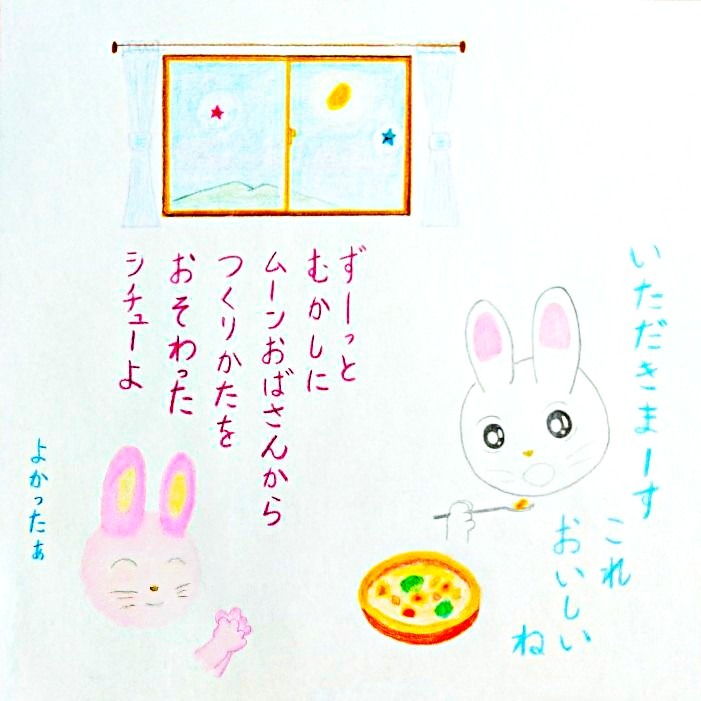 いただきまーす
これ
おいしい
ね
ずーっと
むかしに
ムーンおばさんから
つくりかたを
おそわった
シチューよ
よかったぁ